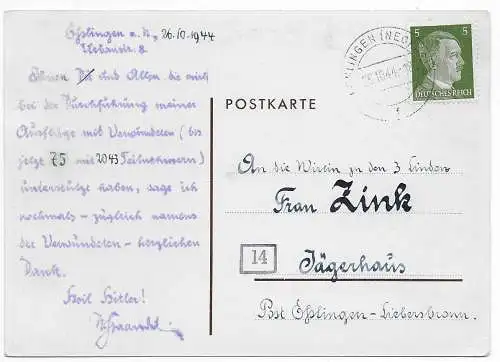 Eßlingen a. N., 26.10.1944
Ihnen und Allen, die mich
bei der Durchführung meiner
Ausflüge mit Verwundeten (bis
jetzt 75 mit 2043 Teilnehmern)
unterstützt haben, sage ich
nochmals – zugleich namens
der Verwundeten – herzlichen
Dank.
Heil Hitler!
POSTKARTE
5 5
DEUTSCHES REICH
An die Wirtin zu den 3 Linden
Frau Zink
14
Jägerhaus
Post Eßlingen-Liebersbronn.